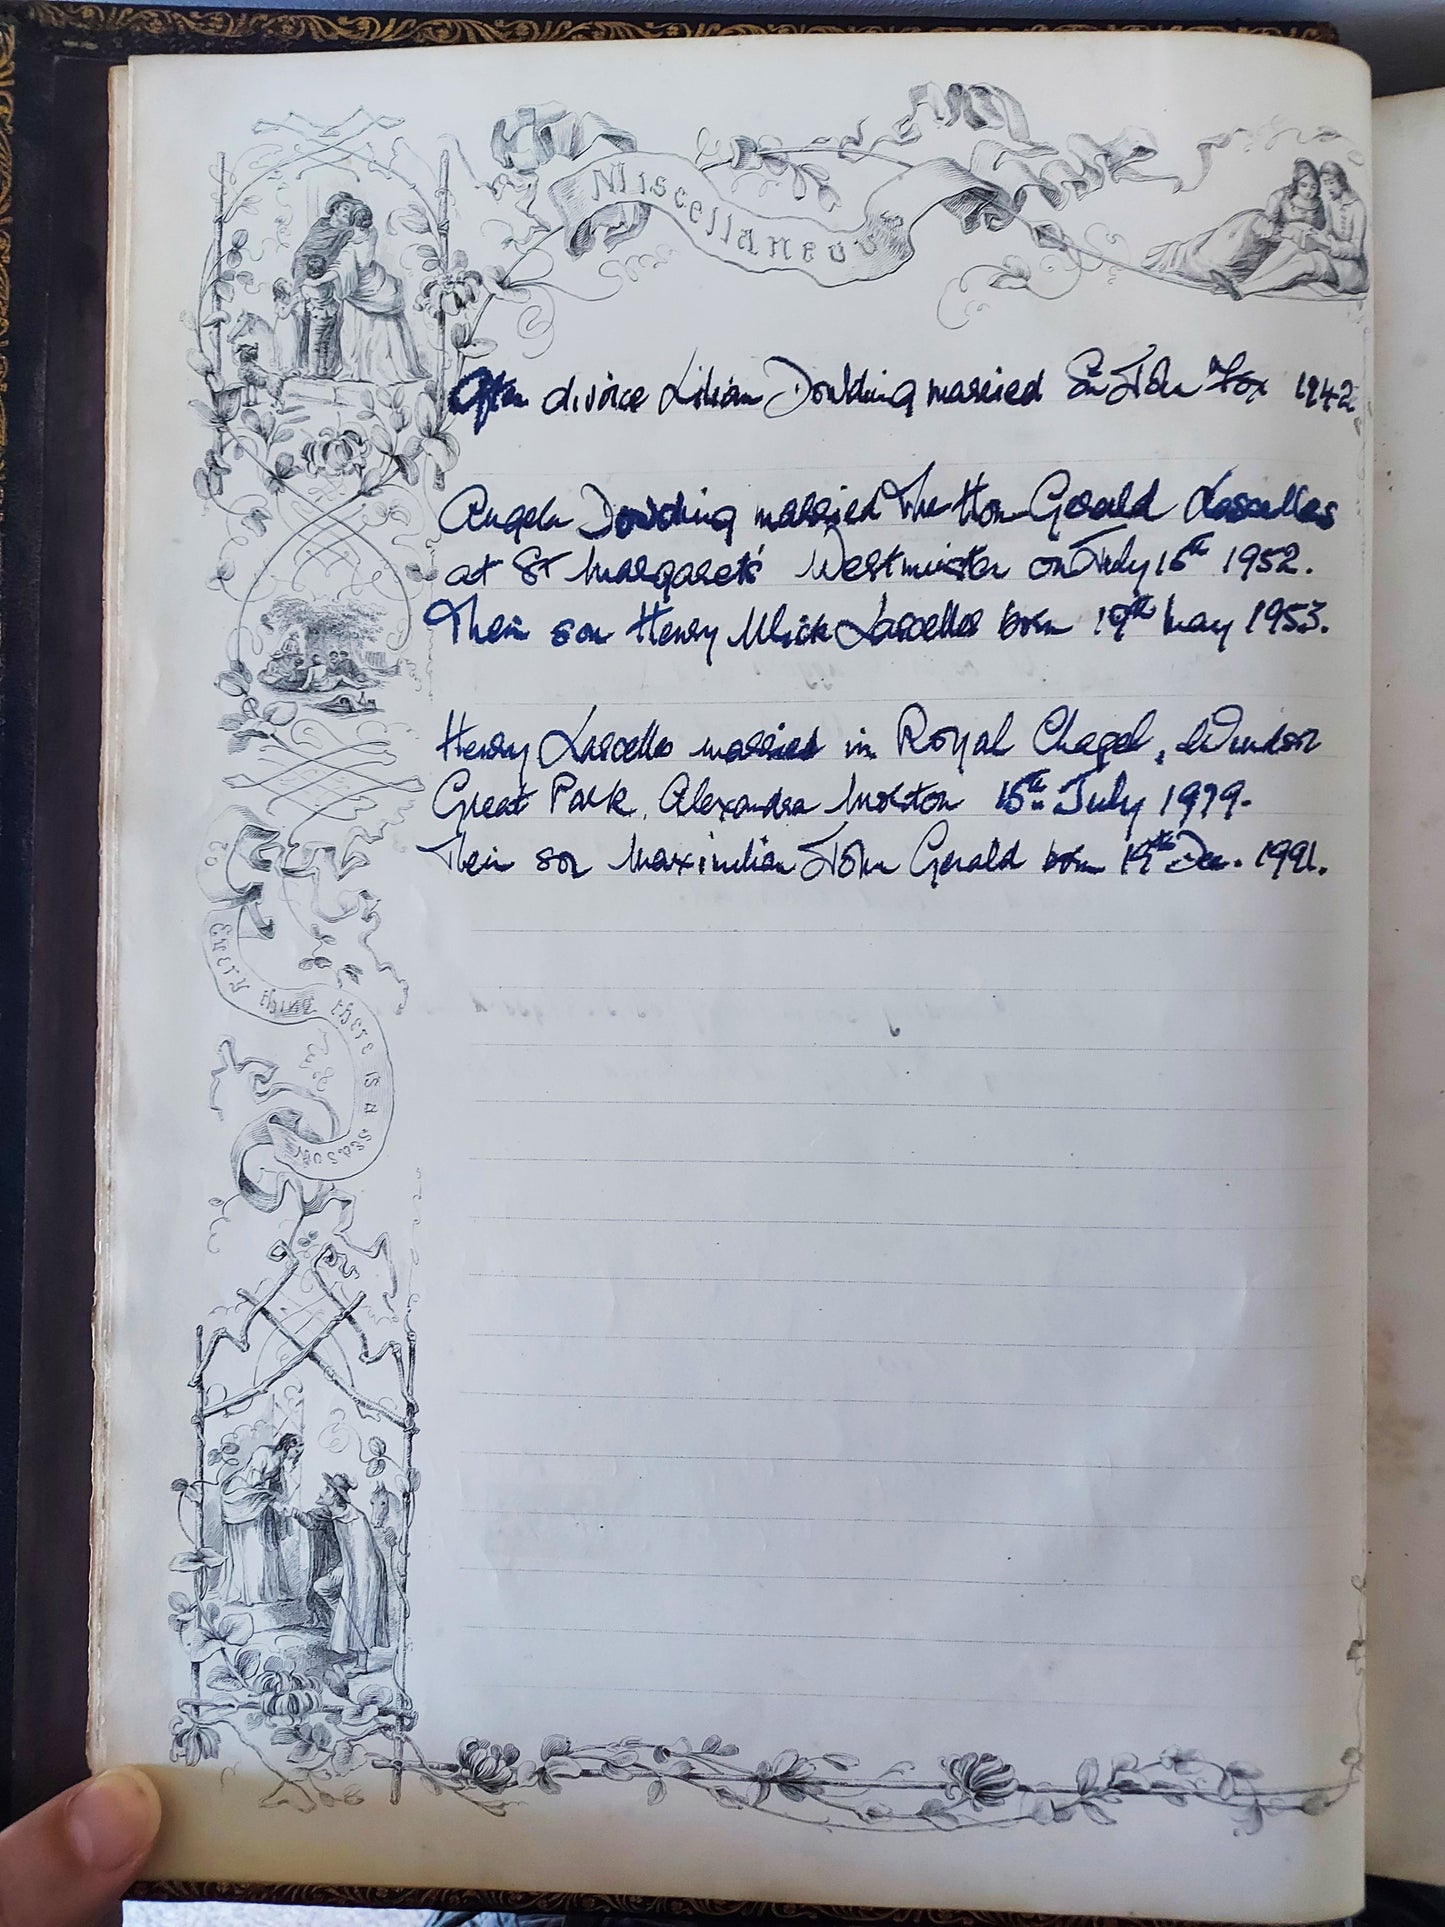 Miscellaneous
After divorce Lilian Dowding married Sir John Fox 1942
Angela Dowding married The Hon Gerald Lascelles
at St Margaret's Westminster on July 15th 1952.
Their son Henry Ulick Lascelles born 19th May 1953.
Henry Lascelles married in Royal Chapel, Windsor
Great Park, Alexandra Morton 15th July 1979.
Their son Maximilian John Gerald born 19th Dec. 1991.
To Every thing there is a season